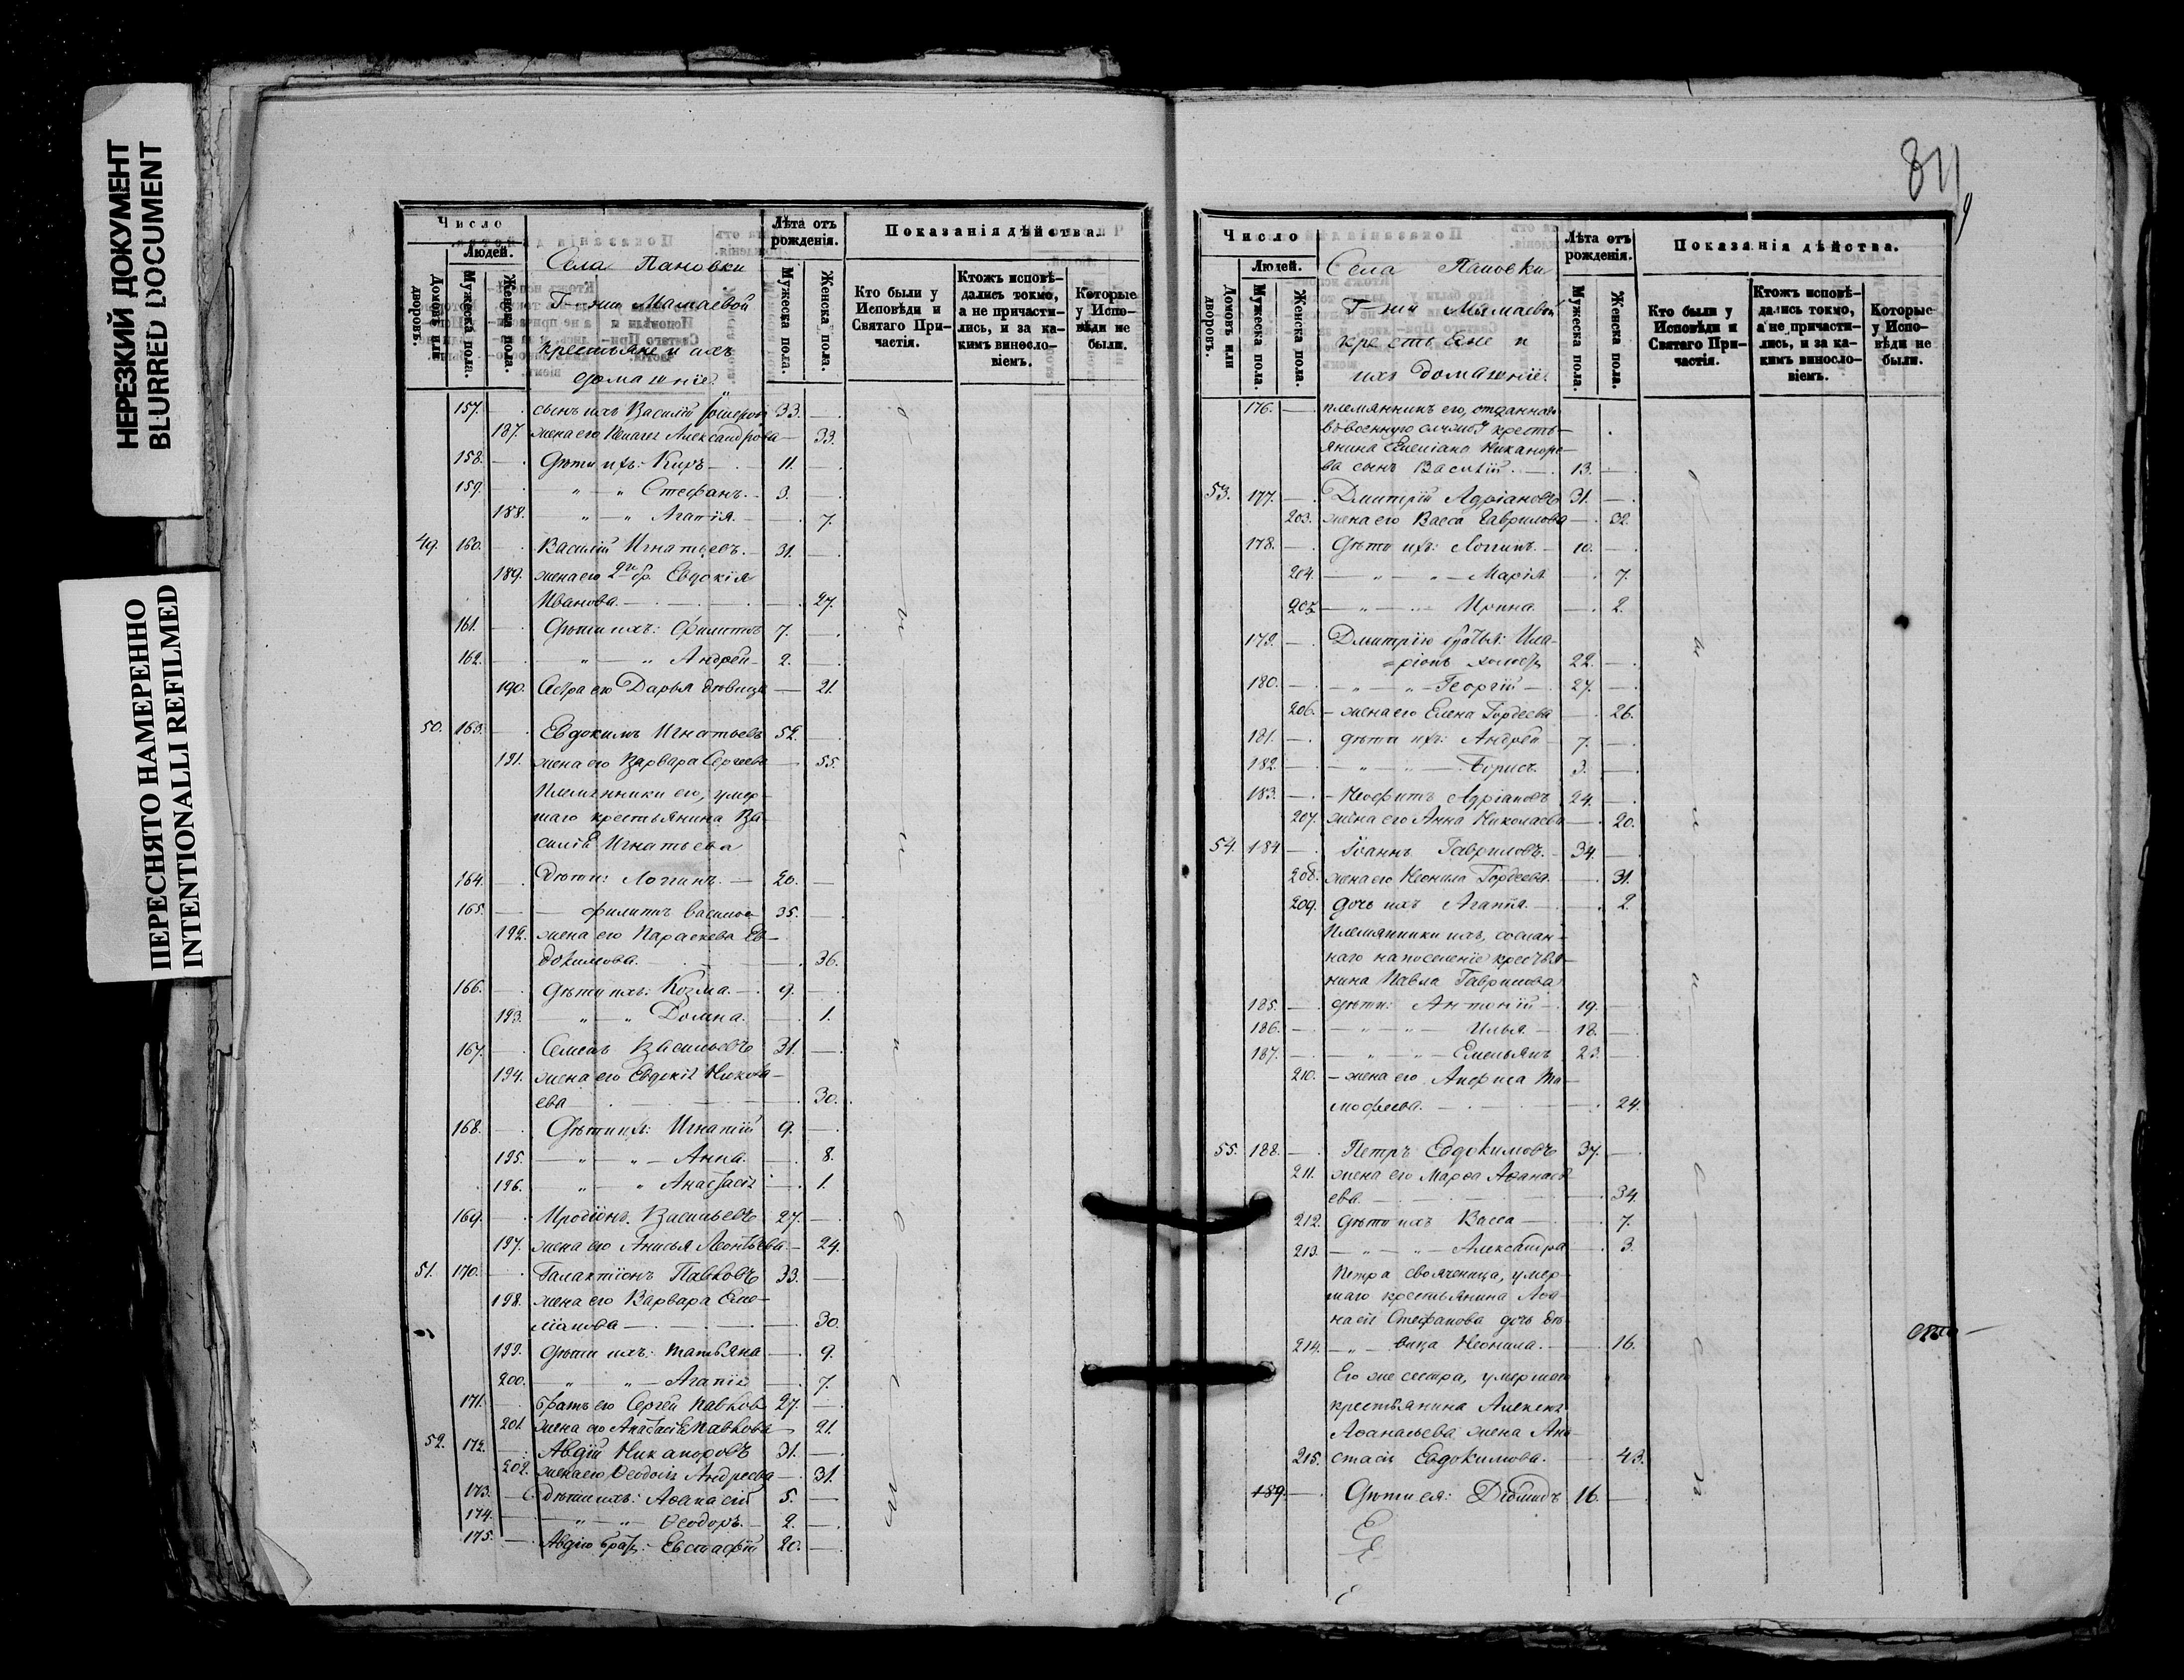 НЕРЕЗКИЙ ДОКУМЕНТ
BLURRED DOCUMENT
ПЕРЕСНЯТО НАМЕРЕННО
INTENTIONALLI REFILMED
Число
Людей.
Домовъ или дворовъ.
Мужеска пола.
Женска пола.
Села Пановки
Г-жи Мамаевой
крестьяне и ихъ
домашніе.
Лѣта отъ рожденія.
Мужеска пола.
Женска пола.
Показанія дѣйства.
Кто были у Исповѣди и Святаго Причастія.
Ктожъ исповѣдались токмо, а не причастились, и за какимъ винословіемъ.
Которые у Исповѣди не были.
157. сынъ ихъ Василій 33.
187. жена его Александрова 33.
158. Дѣти ихъ: Киръ 11.
159. " " Стефанъ. 3.
188. " " Агапія. 7.
49. 160. Василій Игнатьевъ. 31.
189. жена его 2 бр. Евдокія
Иванова. 27.
161. Дѣти ихъ: Филиппъ 7.
162. " " Андрей 2.
190. Сестра его Дарья дѣвица 21.
50. 163. Евдокимъ Игнатьевъ 52.
191. жена его Варвара Сергеева 55.
Племянники его, умер-
шаго крестьянина Ва-
силія Игнатьева
164. дѣти: Логгинъ. 20.
165. Филиппъ Васильев 35.
192. жена его Параскева Ев-
докимова. 36.
166. Дѣти ихъ: Козма. 9.
193. " " Домна. 1.
167. Семенъ Васильевъ 31.
194. жена его Евдокія Никола-
ева 30.
168. Дѣти их: Игнатій 9.
195. " " Анна. 8.
196. " " Анастасія 1.
169. Иродіонъ Васильевъ 27.
197. жена его Анисья Леонтьева. 24.
51. 170. Галактіонъ Павловъ 33.
198. жена его Варвара Еме-
ліанова 30.
199. Дѣти ихъ: Татьяна 9.
200. " " Агапія 7.
171. братъ его Сергей Павлов 27.
201. жена его Анастасія Павлова 21.
52. 172. Авдій Никаноровъ 31.
202. жена его Ѳеодосія Андреева 31.
173. дѣти ихъ: Аѳанасій 5.
174. " " Ѳеодоръ. 2.
175. Авдію брат: Евстафій 20.
Число
Людей.
Домовъ или дворовъ.
Мужеска пола.
Женска пола.
Села Пановки
Г-жи Мамаевой
крестьяне и
ихъ домашніе.
Лѣта отъ рожденія.
Мужеска пола.
Женска пола.
Показанія дѣйства.
Кто были у Исповѣди и Святаго Причастія.
Ктожъ исповѣдались токмо, а не причастились, и за какимъ винословіемъ.
Которые у Исповѣди не были.
176. племянникъ его, отданнаго
въ военную службу кресть-
янина Емеліана Никаноро-
ва сынъ Василій. 13.
53. 177. Дмитрій Адріановъ 31.
203. жена его Васса Гаврилова 32.
178. Дѣти ихъ: Логгинъ. 10.
204. " " Марія 7.
205. " " Ирина. 2.
179. Дмитрію братья: Ила-
ріонъ холост 22.
180. " " Георгій 27.
206. жена его Елена Гордеева 26.
181. дѣти ихъ: Андрей 7.
182. " " Борисъ. 3.
183. Неофитъ Адріановъ 24.
207. жена его Анна Николаева 20.
54. 184 Іоаннъ Гавриловъ. 34.
208. жена его Неонила Гордеева. 31.
209. дочь ихъ Агапія. 2.
Племянники ихъ, сослан-
наго на поселеніе крестья-
нина Павла Гаврилова
185. дѣти: Антоній 19.
186. " " Илья. 18.
187. " " Емельянъ 23.
210. жена его Анфиса Ти-
мофеева. 24.
55. 188. Петръ Евдокимовъ 37.
211. жена его Марѳа Аѳанась-
ева. 34.
212. Дѣти ихъ Васса 7.
213. " " Александра 3.
Петра своячница, умер-
шаго крестьянина Аѳа-
насія Стефанова дочь дѣ-
214. " вица Неонила. 16.
Его же сестра, умершаго
крестьянина Алексея
Аѳанасьева жена Ана-
215. стасія Евдокимова. 43.
189. Дѣти ея: Давидъ 16.